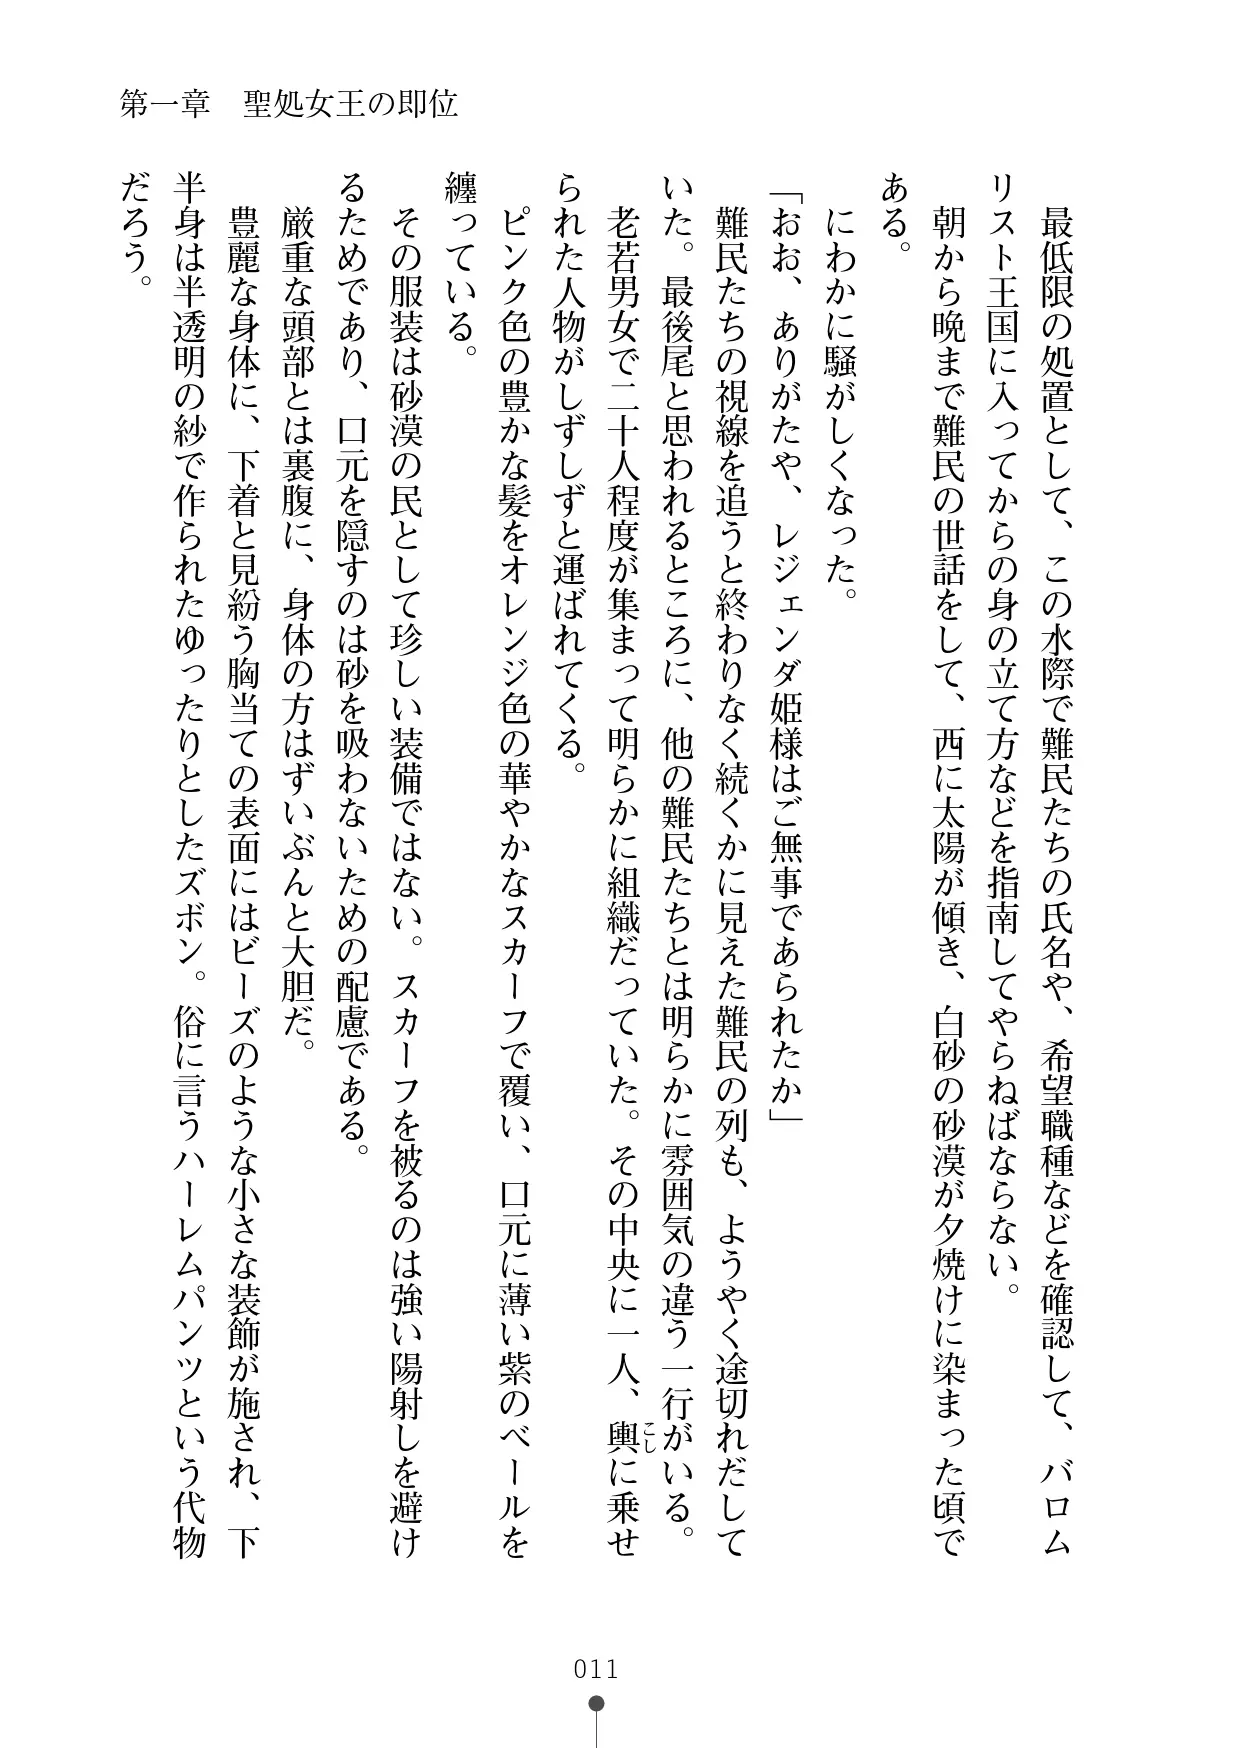 第一章　聖処女王の即位
　最低限の処置として、この水際で難民たちの氏名や、希望職種などを確認して、バロム
リスト王国に入ってからの身の立て方などを指南してやらねばならない。
　朝から晩まで難民の世話をして、西に太陽が傾き、白砂の砂漠が夕焼けに染まった頃で
ある。
　にわかに騒がしくなった。
「おお、ありがたや、レジェンダ姫様はご無事であられたか」
　難民たちの視線を追うと終わりなく続くかに見えた難民の列も、ようやく途切れだして
いた。最後尾と思われるところに、他の難民たちとは明らかに雰囲気の違う一行がいる。
　老若男女で二十人程度が集まって明らかに組織だっていた。その中央に一人、輿に乗せ
こし
られた人物がしずしずと運ばれてくる。
　ピンク色の豊かな髪をオレンジ色の華やかなスカーフで覆い、口元に薄い紫のベールを
纏っている。
　その服装は砂漠の民として珍しい装備ではない。スカーフを被るのは強い陽射しを避け
るためであり、口元を隠すのは砂を吸わないための配慮である。
　厳重な頭部とは裏腹に、身体の方はずいぶんと大胆だ。
　豊麗な身体に、下着と見紛う胸当ての表面にはビーズのような小さな装飾が施され、下
半身は半透明の紗で作られたゆったりとしたズボン。俗に言うハーレムパンツという代物
だろう。
011